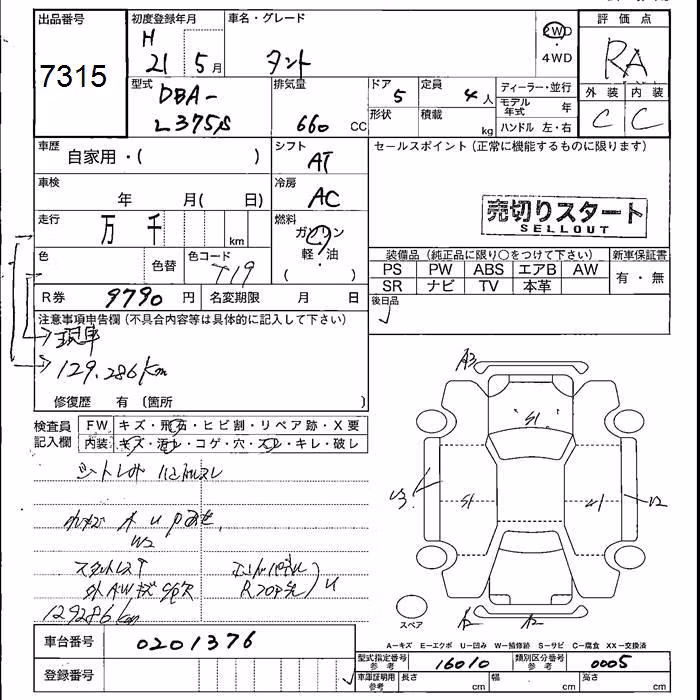 出品番号 初度登録年月 車名・グレード 2WD 評価点
7315 H 21 5月 タント ・ 4WD RA
型式 排気量 ドア 定員 ディーラー・並行 外装 内装
DBA- L375S 660 CC 5 4人 モデル年式 年 C C
形状 積載 kg ハンドル 左・右
車歴 自家用・( ) シフト AT セールスポイント(正常に機能するものに限ります)
車検 年 月( 日) 冷房 AC
走行 万 千 km 燃料 ガソリン 軽・油 ( )
売切りスタート
SELLOUT
色 色替 色コード T19
装備品(純正品に限り○をつけて下さい) 新車保証書
PS PW ABS エアB AW 有・無
SR ナビ TV 本革
R券 9790 円 名変期限 月 日 後日品
注意事項申告欄(不具合内容等は具体的に記入して下さい)
現車
129.286km
修復歴 有 (箇所 )
検査員 FW キズ・飛石・ヒビ割・リペア跡・X要
記入欄 内装 キズ・汚レ・コゲ・穴・スレ・キレ・破レ
A3
S1
U3 S1 A1 U2
W2
129286km
スペア A2 A2
A-キズ E-エクボ U-凹み W-補修跡 S-サビ C-腐食 XX-交換済
車台番号 0201376
型式指定番号 参考 16010 類別区分番号 参考 0005
登録番号 車庫証明用 参考 長さ cm 幅 cm 高さ cm